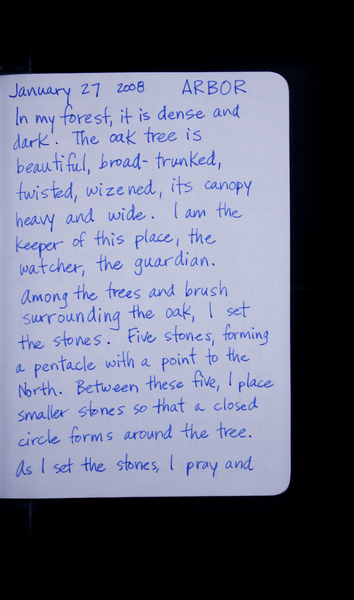 January 27 2008 ARBOR
In my forest, it is dense and
dark. The oak tree is
beautiful, broad-trunked,
twisted, wizened, its canopy
heavy and wide. I am the
keeper of this place, the
watcher, the guardian.
Among the trees and brush
surrounding the oak, I set
the stones. Five stones, forming
a pentacle with a point to the
North. Between these five, I place
smaller stones so that a closed
circle forms around the tree.
As I set the stones, I pray and